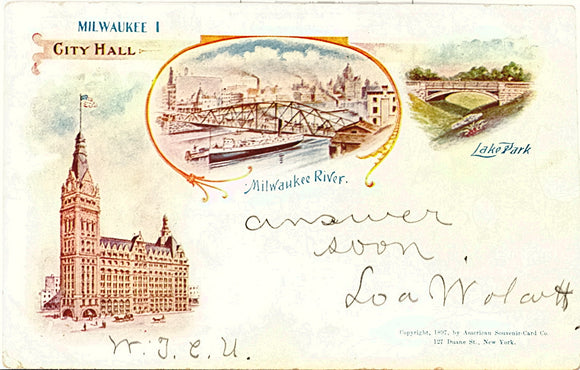 MILWAUKEE I
CITY HALL
Milwaukee River.
Lake Park
answer
soon
Loa Wolcott
Copyright, 1897, by American Souvenir-Card Co.
127 Duane St., New York.
W. T. C. U.